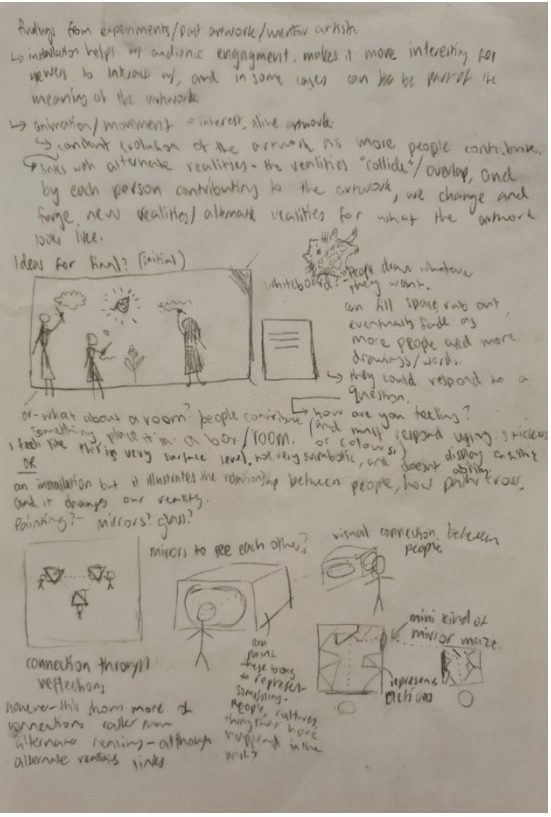 findings from experiments/past artwork/mentor artists
↳ installation helps w/ audience engagment. makes it more interesting for
viewers to interact w/, and in some cases can be part of the
meaning of the artwork
↳ animation/movement = interest, alive artwork
↳ constant evolution of the artwork as more people contribute.
links with alternate realities - the realities "collide"/overlap, and
by each person contributing to the artwork, we change and
forge new realities/alternate realities for what the artwork
looks like.
Ideas for final? (initial)
whiteboard? - people draw whatever
they want.
can fill space, rub out,
eventually fade as
more people add more
drawings/words.
↳ they could respond to a
question.
↳ how are you feeling?
(and must respond using stickers
or colours)
or - what about a room? people contribute
something, place it in a box/room.
I feel like this is very surface level, not very symbolic, and doesn't display artistic
ability.
OR
an installation but it illustrates the relationship between people, how paths cross,
and it changes our reality.
Painting? - mirrors? glass?
mirrors to see each other?
visual connection between
people
connection through
reflections
however this shows more of
connections rather than
alternate realities - although
alternate realities links
can
paint
these boxes
to represent
something -
people, cultures,
things that have
happened in the
mini kind of
mirror maze.
represents
actions